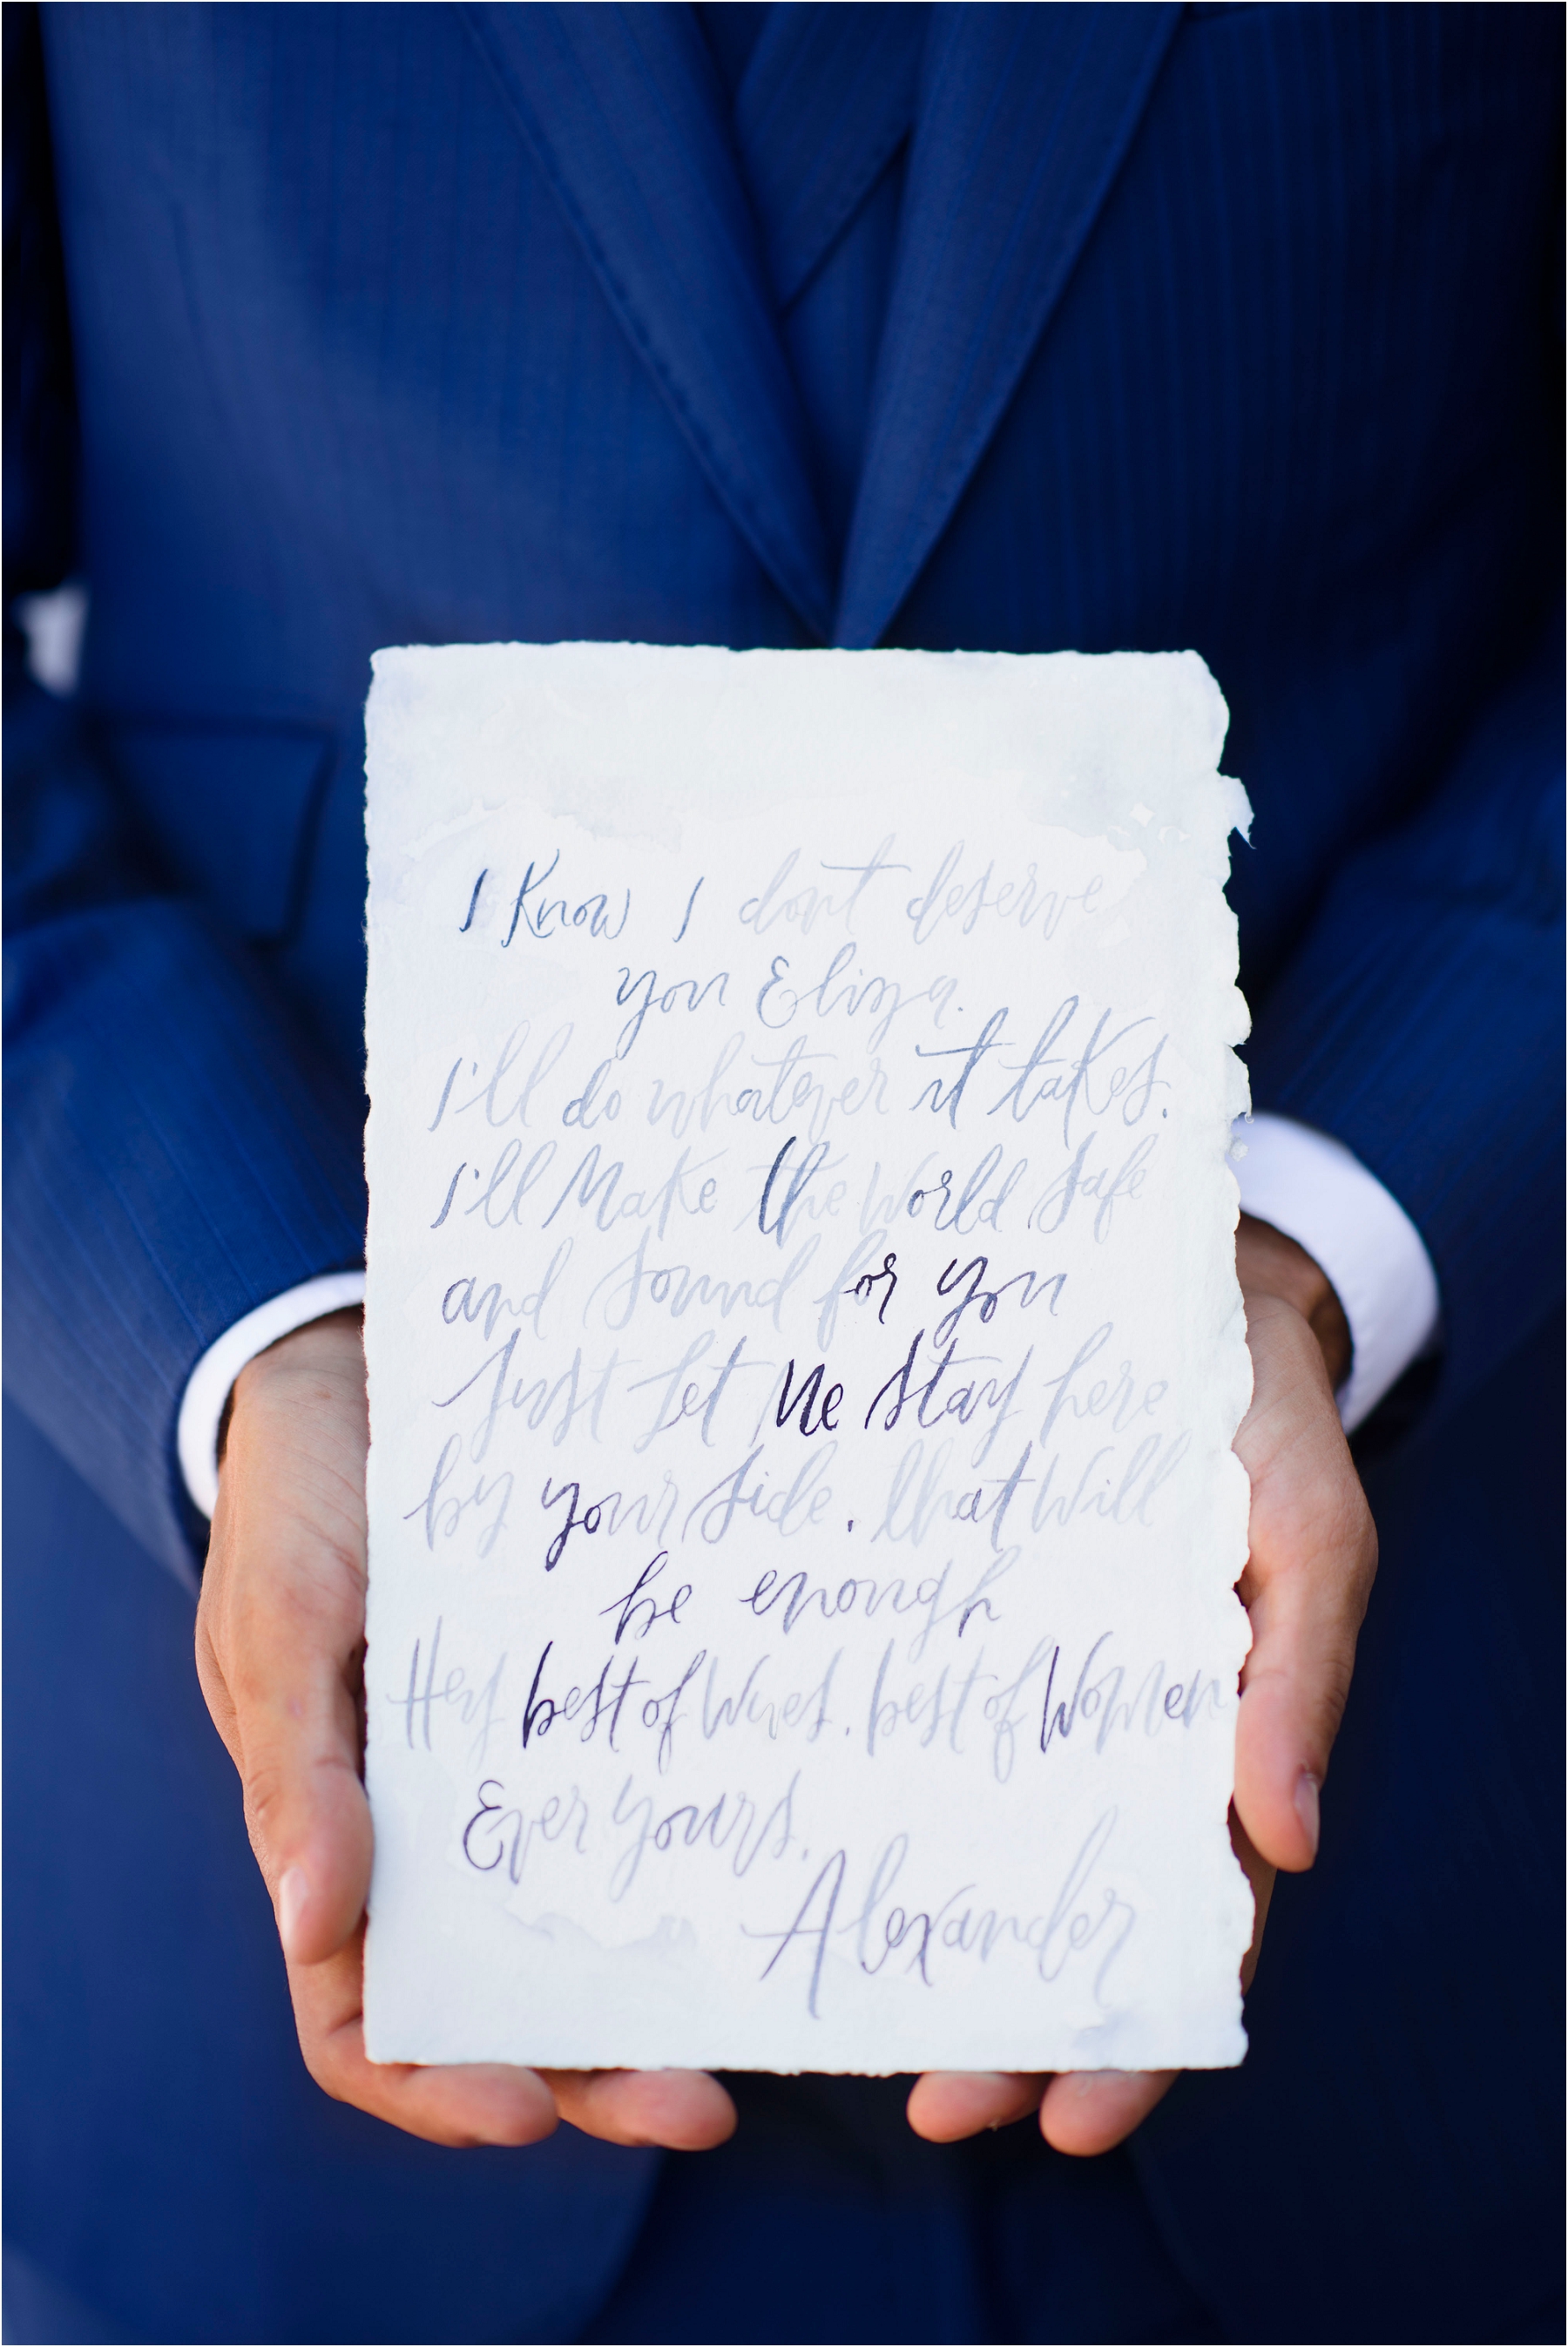 I Know I dont deserve
you Eliza.
I'll do whatever it takes.
I'll Make the World Safe
and Sound for you
Just Let Me Stay here
by your Side. that Will
be enough
Hey best of Wives. best of Women
Ever yours,
Alexander